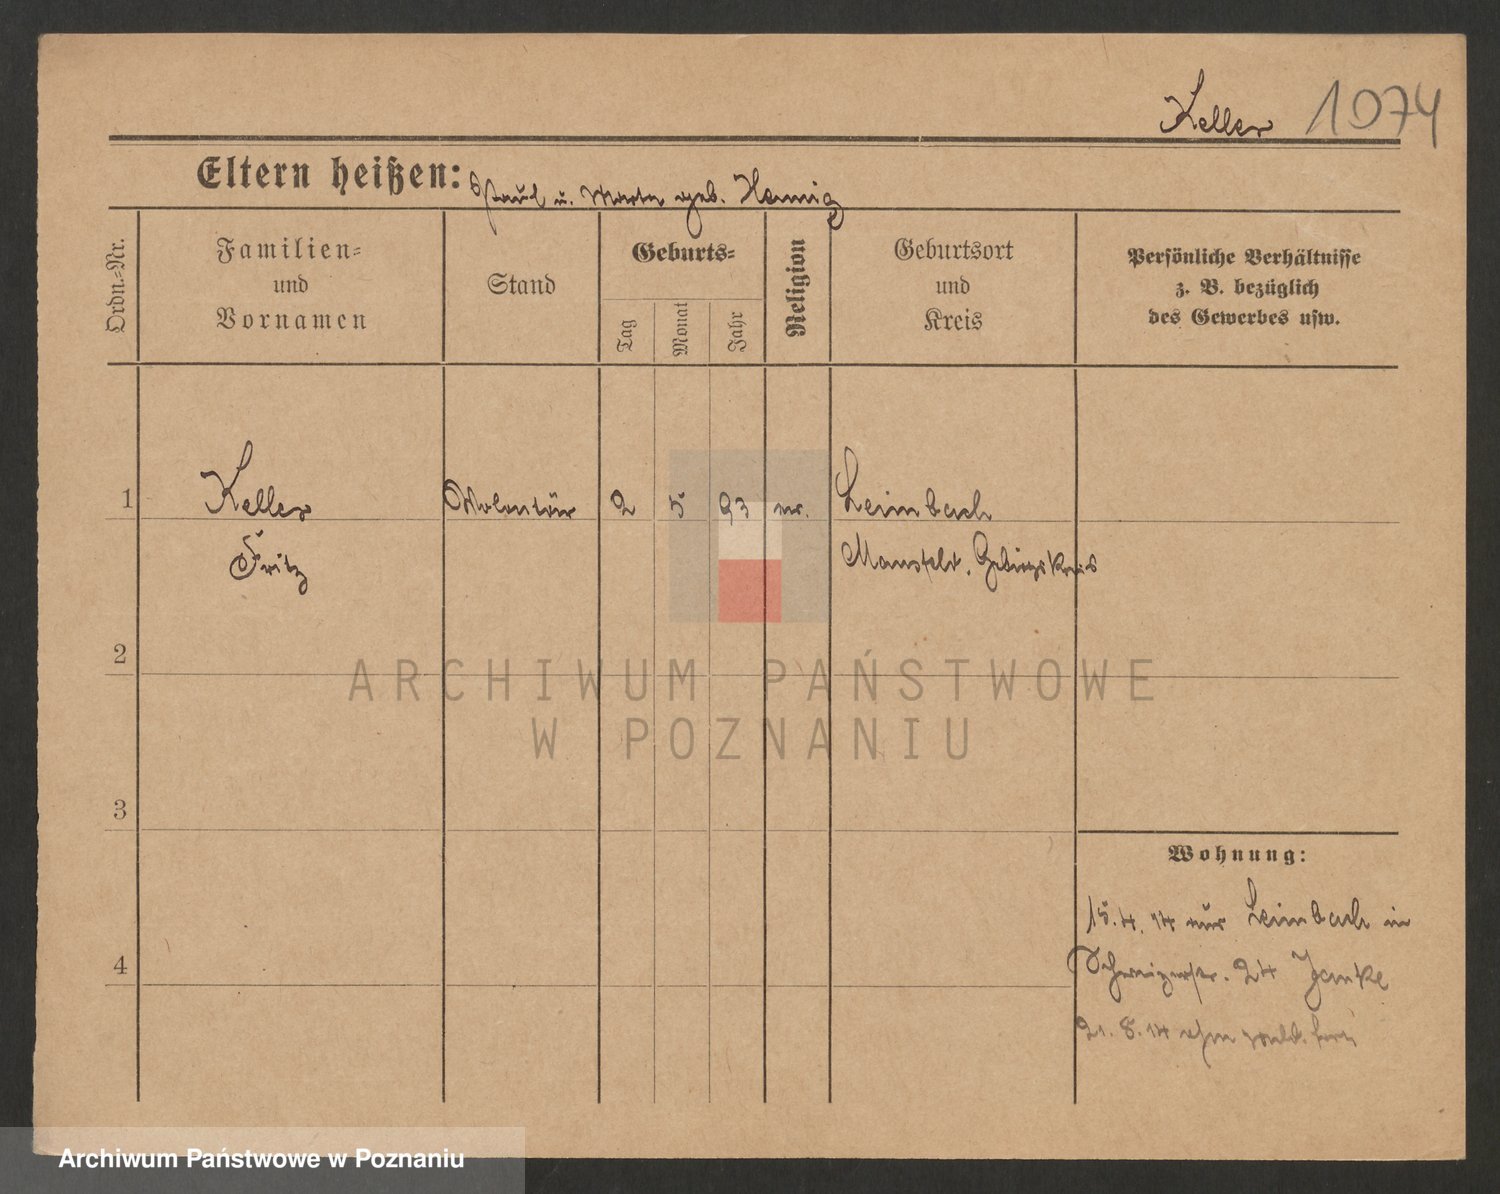 Keller 1074
Eltern heißen: Paul u. Marta geb. Hennig
Ordn.=Nr.
Familien=
und
Vornamen
Stand
Geburts=
Tag
Monat
Jahr
Religion
Geburtsort
und
Kreis
Persönliche Verhältnisse
z. B. bezüglich
des Gewerbes usw.
1 Keller Volontär 2 5 93 ev. Leimbach
Fritz Mansfeld. Gebirgskreis
2
ARCHIWUM PAŃSTWOWE
W POZNANIU
3
Wohnung:
15.4.14 aus Leimbach in
4
Schweizerstr. 24 Janke
21.8.14 ohm
Archiwum Państwowe w Poznaniu